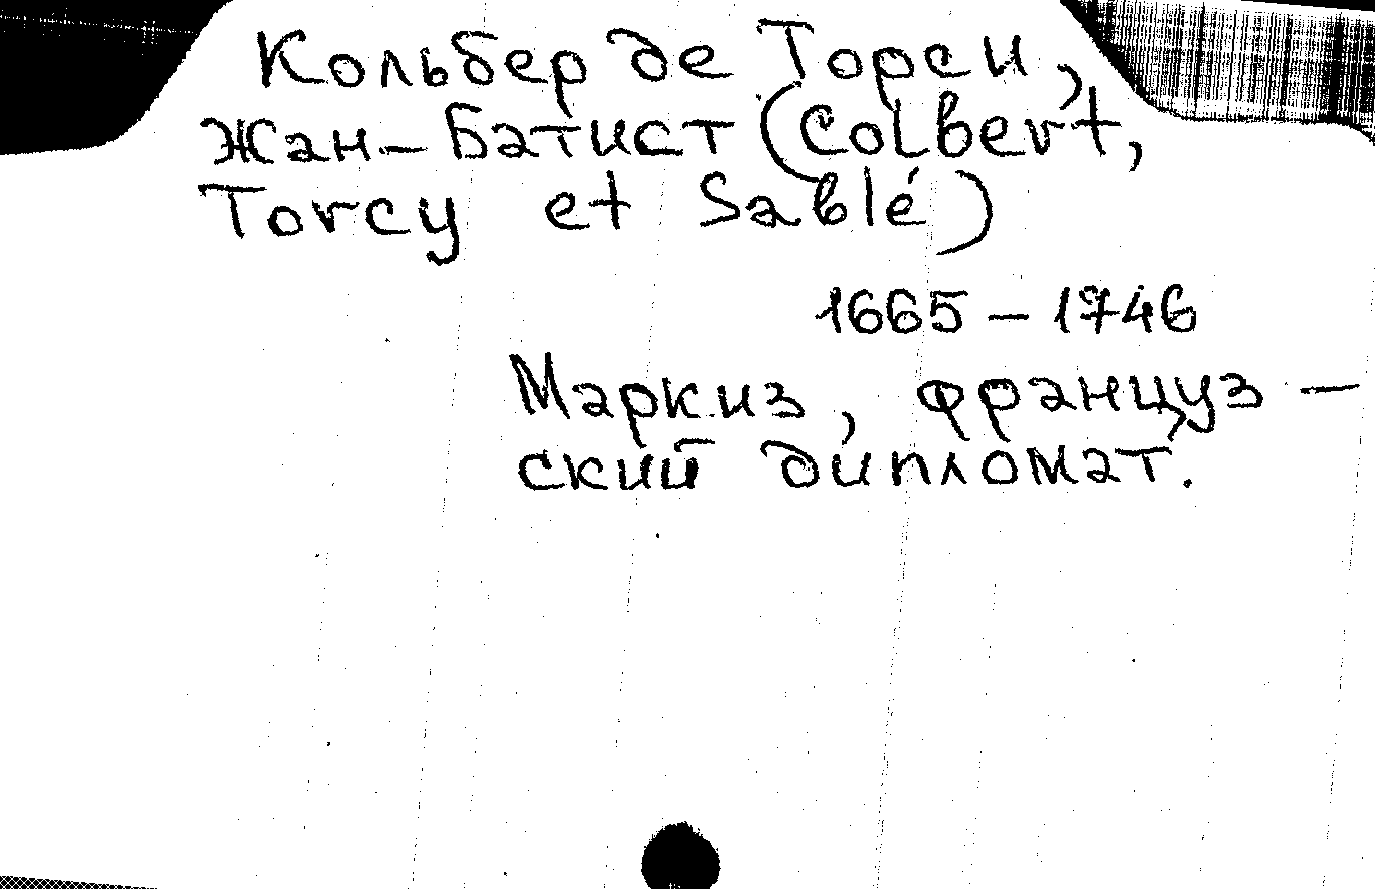 Кольбер де Торси,
Жан-Батист (Colbert,
Torcy et Sablé)
1665 – 1746
Маркиз, француз-
ский дипломат.